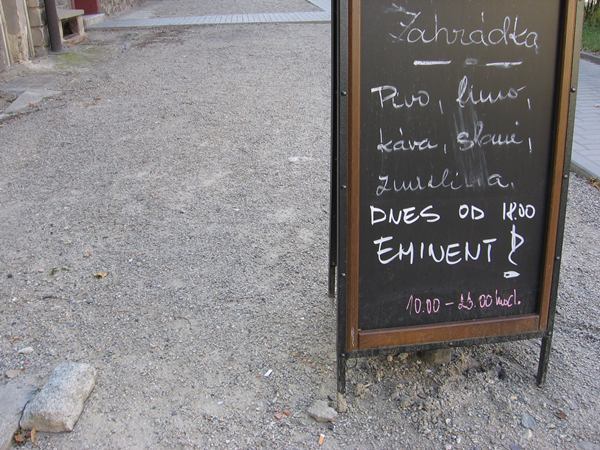 Zahrádka
Pivo, limo,
káva, slané,
zmrzlina.
DNES OD 18.00
EMINENT!
10.00 - 23.00 hod.